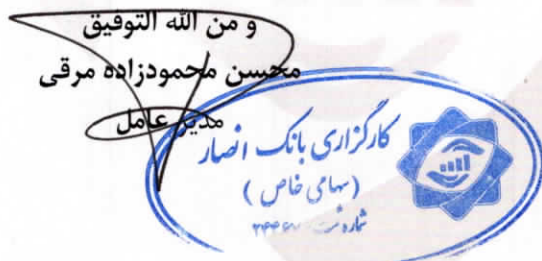 و من الله التوفیق
محسن محمودزاده مرقی
مدیر عامل
کارگزاری بانک انصار
(سهامی خاص)
شماره ثبت